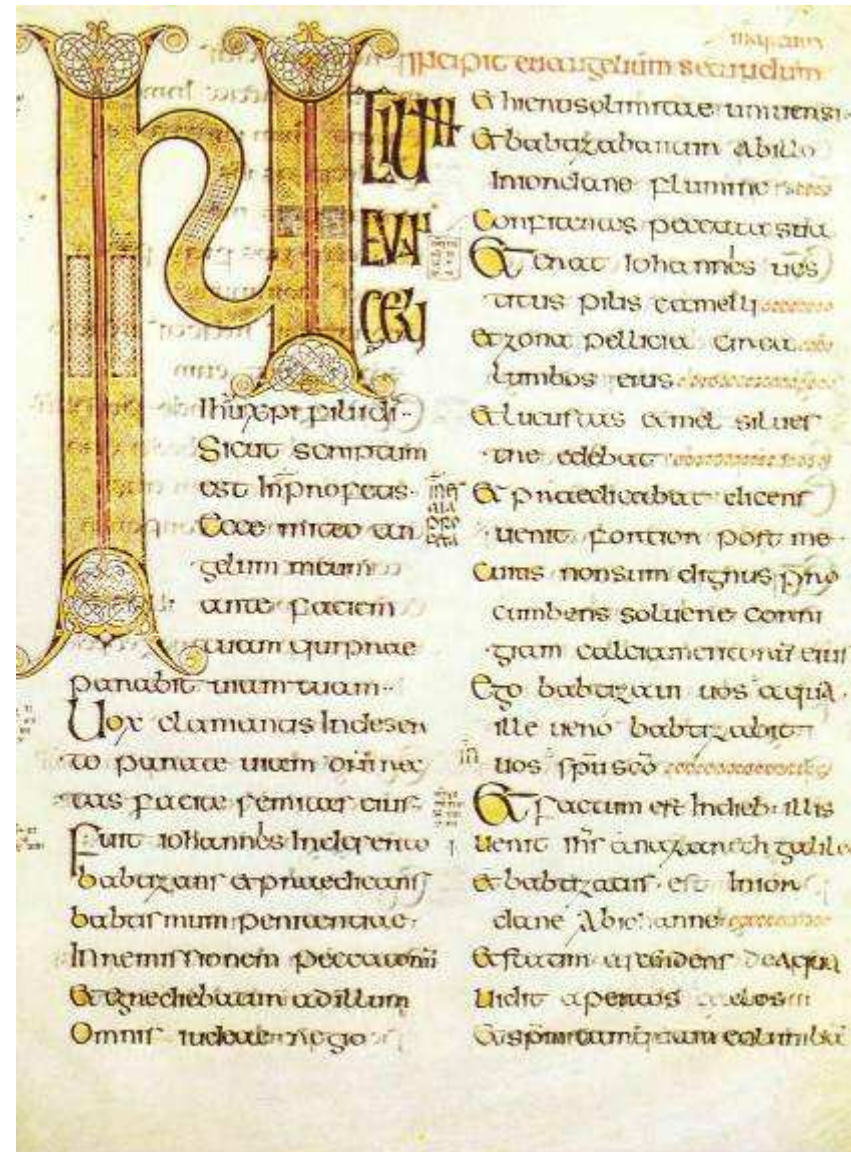 marcum
Incipit euangelium secundum
IN
ITIUM
EVAN
GELII
Ihu xpi fili di
Sicut scriptum
est In profetis
Ecce mitto an
gelum meum
ante faciem
tuam qui prae
parabit uiam tuam
Uox clamantis In deser
to parate uiam dni rec
tas facite semitas eius
Fuit iohannes In deserto
babtizans et praedicans
babtismum penitentiae
In remissionem peccatorum
Et egrediebatur ad illum
Omnis iudeae regio
Et hierusolimitae uniuersi
Et babtizabantur ab illo
In iordane flumine
Confitentes peccata sua
Et erat Iohannes ues
titus pilis camelli
et zona pellicia circa
lumbos eius
Et lucustas et mel siluest
tre edebat
Et praedicabat dicens
uenit fortior post me
Cuius non sum dignus pro
cumbens soluere corri
giam calciamentorum eius
Ego babtizaui uos aqua
ille uero babtizabit
uos spu sco
Et factum est In dieb illis
Uenit ihs a nazareth galile
et babtizatus est In ior
dane Ab iohanne
Et statim ascendens de Aqua
Uidit apertos caelos
Et spm tamquam columba